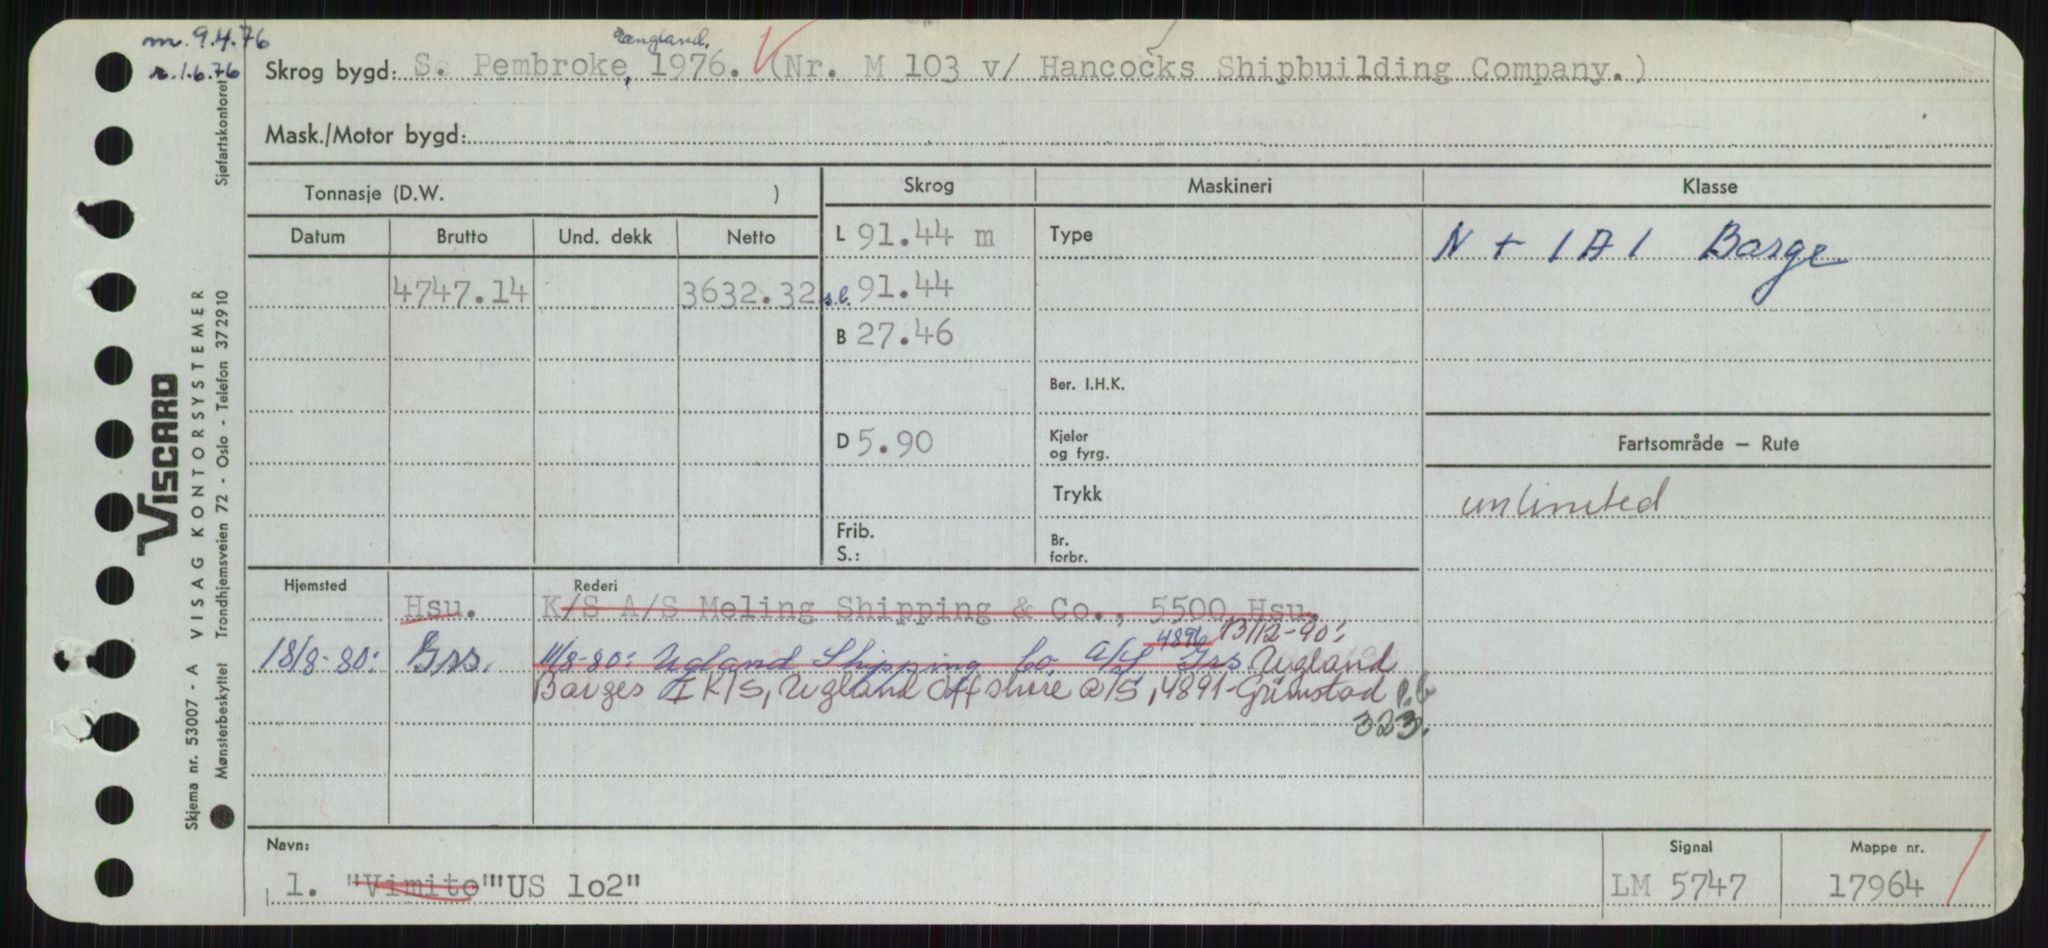 m. 9.4.76
r. 1.6.76
England.
Skrog bygd: S. Pembroke, 1976. (Nr. M 103 v/ Hancocks Shipbuilding Company.)
Mask./Motor bygd:
Tonnasje (D.W. )
Skrog
Maskineri
Klasse
Datum
Brutto
Und. dekk
Netto
L 91.44 m
Type
N + 1A1 Barge
4747.14
3632.32
s.l. 91.44
B 27.46
Ber. I.H.K.
D 5.90
Kjeler
og fyrg.
Fartsområde – Rute
Trykk
unlimited
Frib.
S.:
Br.
forbr.
Hjemsted
Rederi
Hsu.
K/S A/S Meling Shipping & Co., 5500 Hsu.
4896 13/12-90:
18/8-80: Grs. 11/8-80: Ugland Shipping Co. A/S Grs. Ugland
Barges I K/S, Ugland Offshore a/s, 4891-Grimstad P.b
323.
Navn:
Signal
Mappe nr.
1. "Vimito" "US 1o2"
LM 5747
17964
Sjøfartskontoret
VISCARD
Skjema nr. 53007 - A VISAG KONTORSYSTEMER
Mønsterbeskyttet Trondhjemsveien 72 - Oslo - Telefon 372910